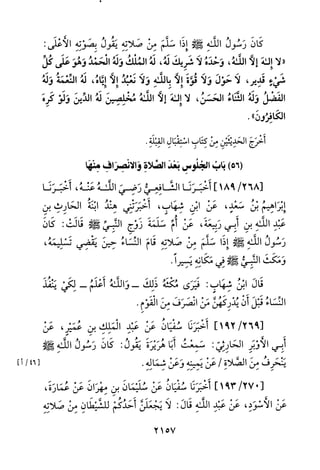 كَانَ رَسُولُ اللَّهِ ﷺ إِذَا سَلَّمَ مِنْ صَلَاتِهِ يَقُولُ بِصَوْتِهِ الأَعْلَى:
«لا إِلَـٰهَ إِلاَّ اللَّهُ، وَحْدَهُ لَا شَرِيكَ لَهُ، لَهُ المُلْكُ وَلَهُ الْحَمْدُ وَهُوَ عَلَى كُلِّ
شَيْءٍ قَدِير، لَا حَوْلَ وَلَا قُوَّةَ إِلاَّ بِاللَّهِ وَلَا نَعْبُدُ إِلاَّ إِيَّاهُ، لَهُ النِّعْمَةُ وَلَهُ
الْفَضْلُ وَلَهُ الثَّنَاءُ الْحَسَنُ، لا إِلـٰهَ إِلاَّ اللَّهُ مُخْلِصِينَ لَهُ الدِّينَ وَلَوْ كَرِهَ
الْكَافِرُونَ».
أَخْرَجَ الْحَدِيثَيْنِ مِنْ كِتَابِ اسْتِقْبَالِ الْقِبْلَةِ.
(٥٦) بَابُ الجُلُوسِ بَعْدَ الصَّلاةِ وَالانْصِرَافِ مِنْهَا
[١٨٩/٢٦٨] أَخْبَـرَنَـا الشَّـافِعِـيُّ رَضِـيَ اللَّـهُ عَنْـهُ، أَخْبَـرَنَـا
إِبْرَاهِيمُ بْنُ سَعْدٍ، عَنْ ابْنِ شِهَابٍ، أَخْبَرَتْنِي هِنْدُ ابْنَةُ الْحَارِثِ بنِ
عَبْدِ اللَّهِ بنِ أَبِـي رَبِيعَةَ، عَنْ أُمِّ سَلَمَةَ زَوْجِ النَّبِيِّ ﷺ قَالَتْ: كَانَ
رَسُولُ اللَّهِ ﷺ إِذَا سَلَّمَ مِنْ صَلَاتِهِ قَامَ النِّسَاءُ حِينَ يَقْضِي تَسْلِيمَهُ،
وَمَكَثَ النَّبِيُّ ﷺ فِي مَكَانِهِ يَسِيراً.
قَالَ ابْنُ شِهَابٍ: فَنَرَى مُكْثَهُ ذَلِكَ ــ وَاللَّهُ أَعْلَمُ ــ لِكَيْ يَنْفُذَ
النِّسَاءُ قَبْلَ أَنْ يُدْرِكَهُنَّ مَنْ انْصَرَفَ مِنَ الْقَوْمِ.
[١٩٢/٢٦٩] أَخْبَرَنَا سُفْيَانُ عَنْ عَبْدِ الْمَلِكِ بنِ عُمَيْرٍ، عَنْ
أَبِـي الأَوْبَرِ الحَارِثِيِّ: سَمِعْتُ أَبَا هُرَيْرَةَ يَقُولُ: كَانَ رَسُولُ اللَّهِ ﷺ
يَنْحَرِفُ مِنَ الصَّلاةِ / عَنْ يَمِينِهِ وَعَنْ شِمَالِهِ. [٤٦/أ]
[١٩٣/٢٧٠] أَخْبَرَنَا سُفْيَانُ عَنْ سُلَيْمَانَ بنِ مِهْرَانَ عَنْ عُمَارَةَ،
عَنْ الأَسْوَدِ، عَنْ عَبْدِ اللَّهِ قَالَ: لَا يَجْعَلَنَّ أَحَدُكُمْ لِلشَّيْطَانِ مِنْ صَلاتِهِ
٢١٥٧